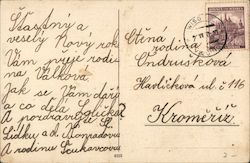 Šťastný a
veselý Nový rok
Vám přeje rodina
Válkova
Jak se Vám daří
a co dělá Soňička?
A pozdravujte
Lidku a d. Konrádovu
A rodinu
Ctěná
rodina
Ondrušková
Havlíčkova ul. č 116
Kroměříž